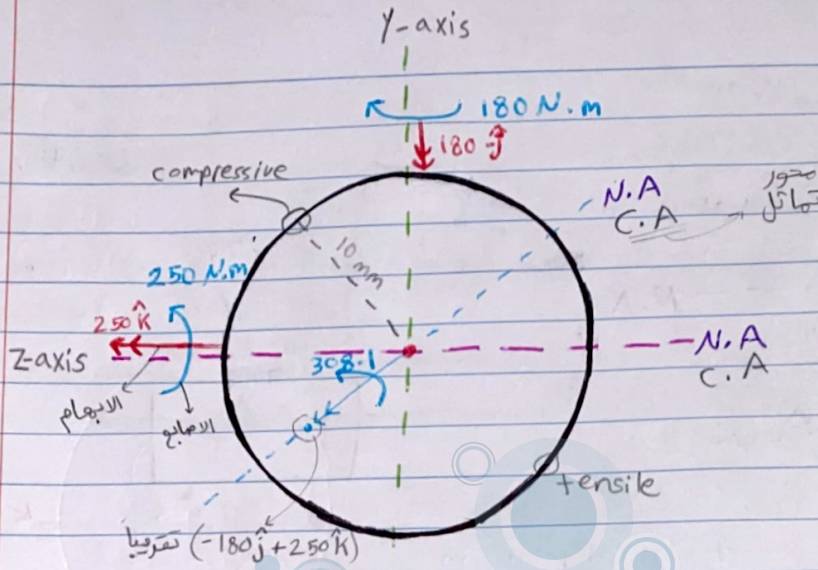 Y-axis
180 N.m
180 -ĵ
compressive
N.A
C.A
محور
تماثل
10 mm
250 N.m
250 k̂
Z-axis
308.1
N.A
C.A
الابهام
الاصابع
tensile
(-180ĵ+250k̂) تقريباً